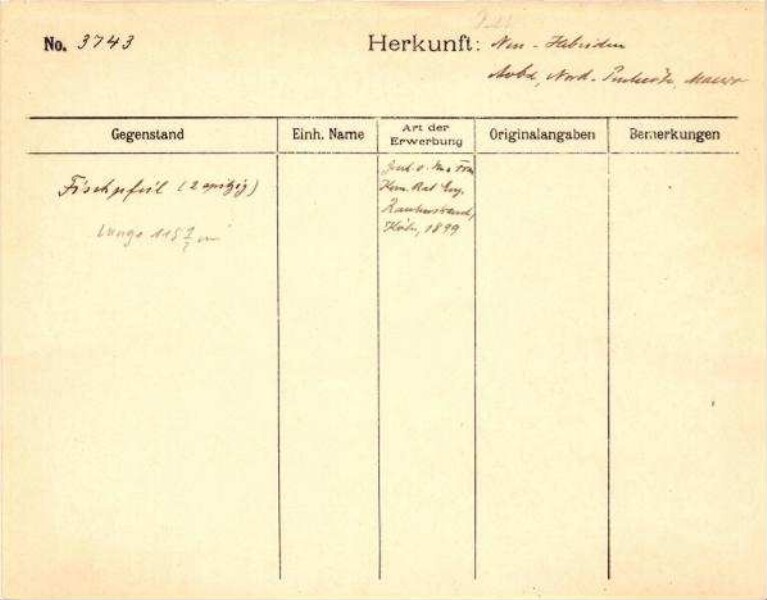 No. 3743
Herkunft: Neu-Hebriden
Aoba, Nord-Pentecôte, Maewo
Gegenstand
Einh. Name
Art der
Erwerbung
Originalangaben
Bemerkungen
Fischpfeil (2 spitzig)
Länge 115
Gesch. v.
Rat Eug.
Rautenstrauch,
Köln, 1899